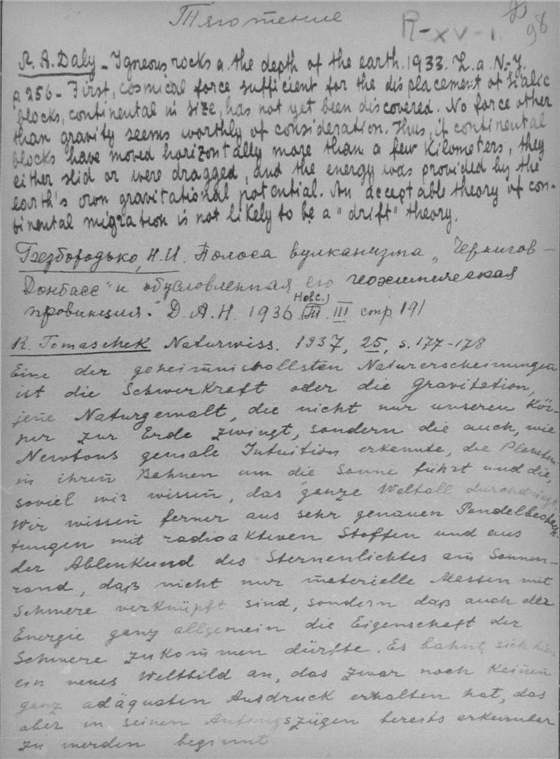 Тяготение
R-XV-1. 98
R. A. Daly - Igneous rocks a. the depth of the earth. 1933. L. a. N-Y.
p 256 - First, cosmical force sufficient for the displacement of sialic
blocks, continental in size, has not yet been discovered. No force other
than gravity seems worthly of consideration. Thus, if continental
blocks have moved horizontally more than a few kilometers, they
either slid or were dragged, and the energy was provided by the
earth's own gravitational potential. An acceptable theory of con-
tinental migration is not likely to be a "drift" theory.
Безбородько, Н.И. Полоса вулканизма „Чернигов-
Донбасс" и обусловленная его геохимическая
провинция. Д.А.Н. 1936 (Нов.с.) III стр 191
R. Tomaschek Naturwiss. 1937, 25, S. 177-178
Eine der geheimnisvollsten Naturerscheinungen
ist die Schwerkraft oder die Gravitation,
jene Naturgewalt, die nicht nur unseren Kör-
per zur Erde zwingt, sondern die auch, wie
Newtons geniale Intuition erkennte, die Planeten
in ihren Bahnen um die Sonne führt und die,
soviel wir wissen, das ganze Weltall durchdringt.
Wir wissen ferner aus sehr genauen Pendelbeobach-
tungen mit radioaktiven Stoffen und aus
der Ablenkund des Sternenlichtes am Sonnen-
rand, daß nicht nur materielle Massen mit
Schwere verknüpft sind, sondern daß auch der
Energie ganz allgemein die Eigenschaft der
Schwere zukommen dürfte. Es bahnt sich
ein neues Weltbild an, das zwar noch keinen
ganz adäquaten Ausdruck erhalten hat, das
aber in seinen Anfangszügen bereits erkennbar
zu werden beginnt